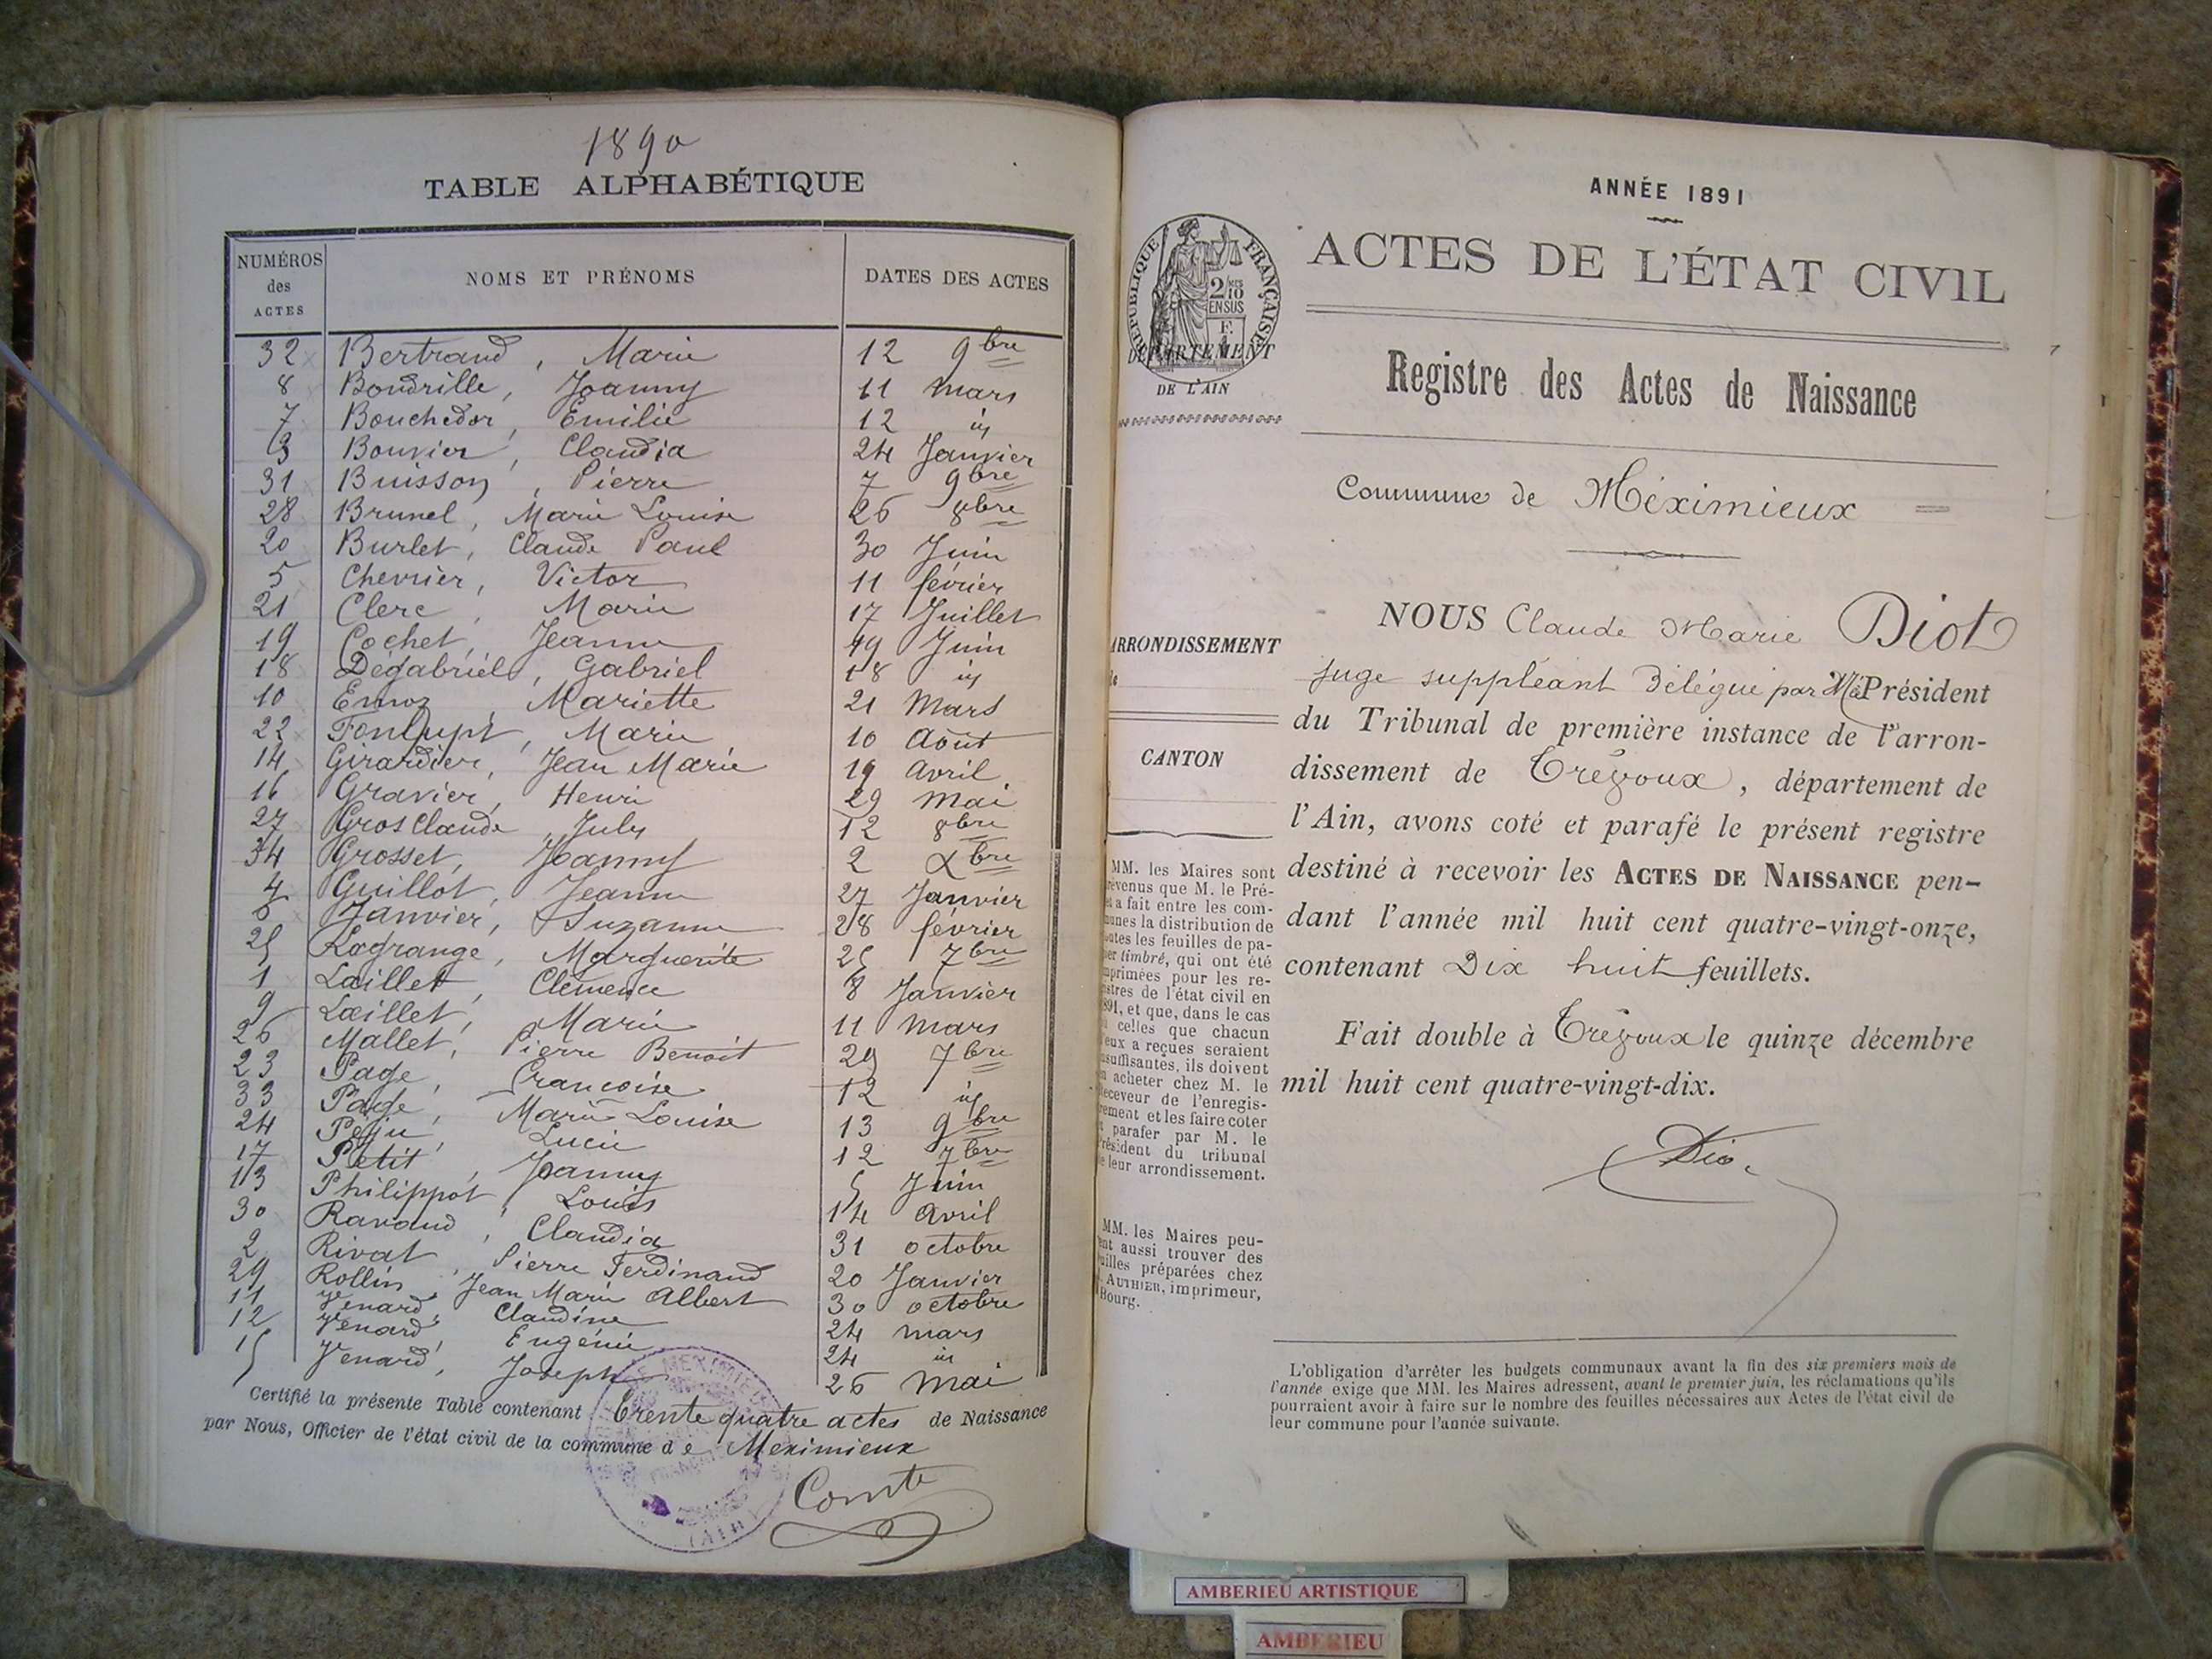 1890
TABLE ALPHABÉTIQUE
NUMÉROS des ACTES NOMS ET PRÉNOMS DATES DES ACTES
32 Bertrand, Marie 12 9bre
8 Bondrille, Joanny 11 mars
7 Bouchedor, Emilie 12 id
3 Bouvier, Claudia 24 Janvier
31 Buisson, Pierre 7 9bre
28 Brunel, Marie Louise 26 8bre
20 Burlet, Claude Paul 30 Juin
5 Chevrier, Victor 11 février
21 Clerc, Marie 17 Juillet
19 Cochet, Jeanne 19 Juin
18 Dégabriel, Gabriel 18 id
10 Emoz, Mariette 21 Mars
22 Fontlupt, Marie 10 Août
14 Girardier, Jean Marie 19 avril
16 Gravier, Henri 29 mai
27 GrosClaude, July 12 8bre
34 Grosset, Joanny 2 Xbre
4 Guillot, Jeanne 27 Janvier
6 Janvier, Suzanne 28 février
25 Lagrange, Marguerite 25 7bre
1 Laillet, Clémence 8 Janvier
9 Laillet, Marie 11 mars
26 Mallet, Pierre Benoit 29 7bre
23 Page, Francoise 12 id
33 Page, Marie Louise 13 9bre
24 Péju, Lucie 12 7bre
17 Petit, Joanny 5 Juin
13 Philippot, Louis 14 avril
30 Ravaud, Claudia 31 octobre
2 Rivat, Pierre Ferdinand 20 Janvier
29 Rollin, Jean Marie Albert 30 octobre
11 Venard, Claudine 24 mars
12 Venard, Eugénie 24 id
15 Venard, Joseph 26 mai
Certifié la présente Table contenant Trente quatre actes de Naissance
par Nous, Officier de l'état civil de la commune de Meximieux
Comte
ANNÉE 1891
ACTES DE L'ÉTAT CIVIL
RÉPUBLIQUE FRANÇAISE
2/10 EN SUS
DÉPARTEMENT
DE L'AIN
Registre des Actes de Naissance
Commune de Méximieux
NOUS Claude Marie Diot
juge suppléant délégué par Mr le Président
du Tribunal de première instance de l'arron-
dissement de Trévoux, département de
l'Ain, avons coté et parafé le présent registre
destiné à recevoir les ACTES DE NAISSANCE pen-
dant l'année mil huit cent quatre-vingt-onze,
contenant Dix huit feuillets.
Fait double à Trévoux le quinze décembre
mil huit cent quatre-vingt-dix.
Diot
ARRONDISSEMENT
CANTON
MM. les Maires sont
révenus que M. le Pré-
et a fait entre les com-
unes la distribution de
utes les feuilles de pa-
er timbré, qui ont été
mprimées pour les re-
istres de l'état civil en
891, et que, dans le cas
celles que chacun
eux a reçues seraient
nsuffisantes, ils doivent
acheter chez M. le
eceveur de l'enregis-
rement et les faire coter
parafer par M. le
résident du tribunal
e leur arrondissement.
MM. les Maires peu-
ent aussi trouver des
uilles préparées chez
AUTHIER, imprimeur,
Bourg.
L'obligation d'arrêter les budgets communaux avant la fin des six premiers mois de
l'année exige que MM. les Maires adressent, avant le premier juin, les réclamations qu'ils
pourraient avoir à faire sur le nombre des feuilles nécessaires aux Actes de l'état civil de
leur commune pour l'année suivante.
AMBERIEU ARTISTIQUE
AMBERIEU